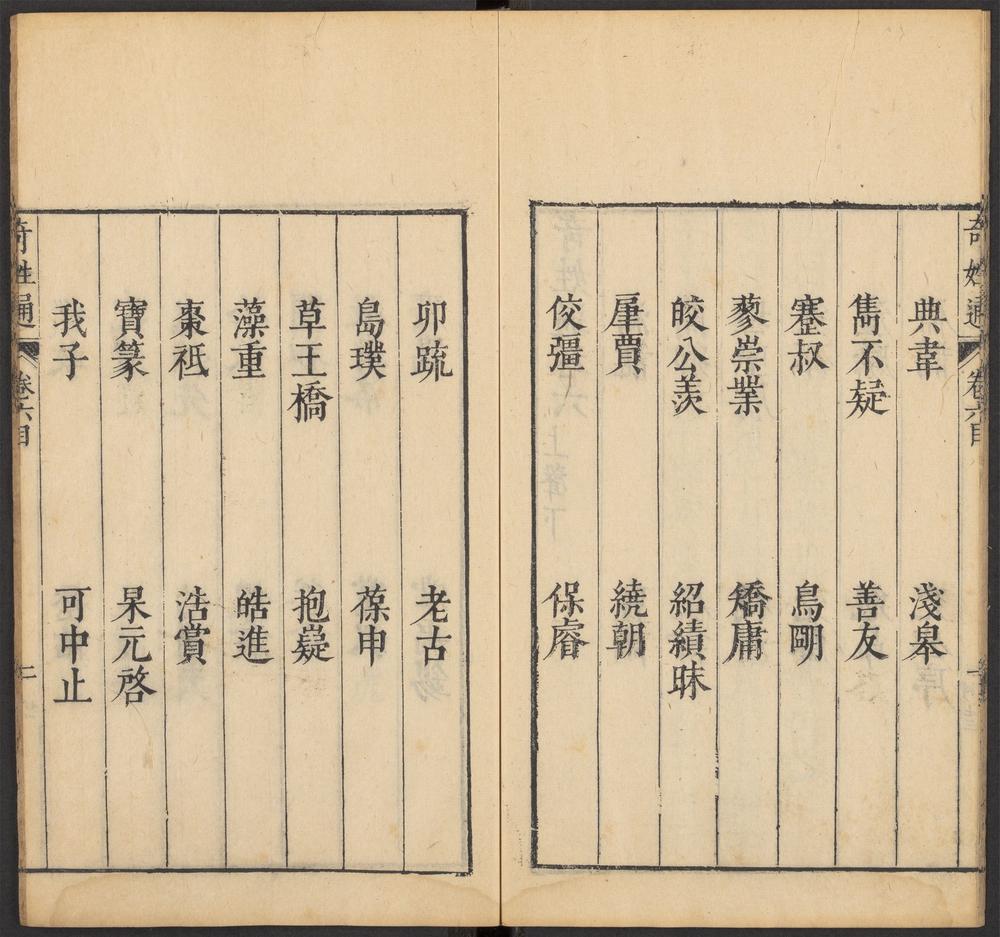 奇姓通 卷六目 一
典韋 淺皋
雋不疑 善友
蹇叔 鳥䦆
蓼崇業 矯庸
皎公羨 紹績昧
肁賈 繞朝
佼彊 保睿
卯疏 老古
島璞 葆申
草王橋 抱嶷
藻重 皓進
棗祗 浩賞
寶篆 杲元啓
我子 可中止
奇姓通 卷六目 二